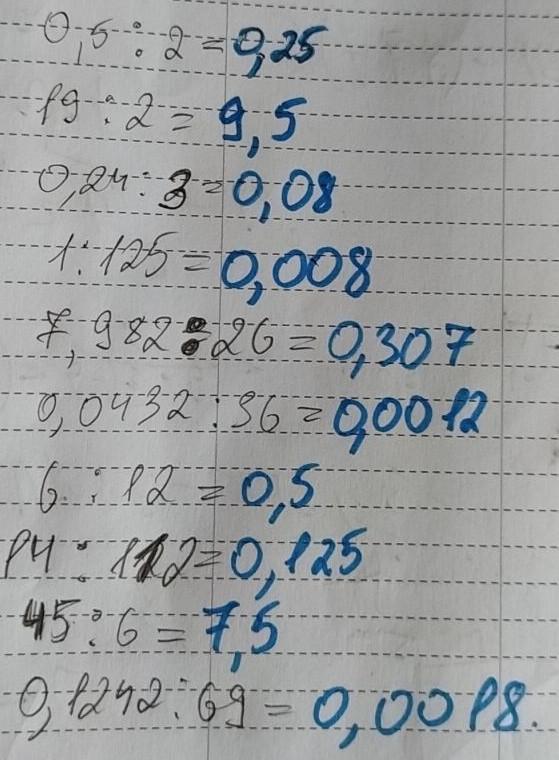 0,5 : 2 = 0,25
19 : 2 = 9,5
0,24 : 3 = 0,08
1 : 125 = 0,008
7,982 : 26 = 0,307
0,0432 : 36 = 0,0012
6 : 12 = 0,5
14 : 112 = 0,125
45 : 6 = 7,5
0,1242 : 69 = 0,0018.